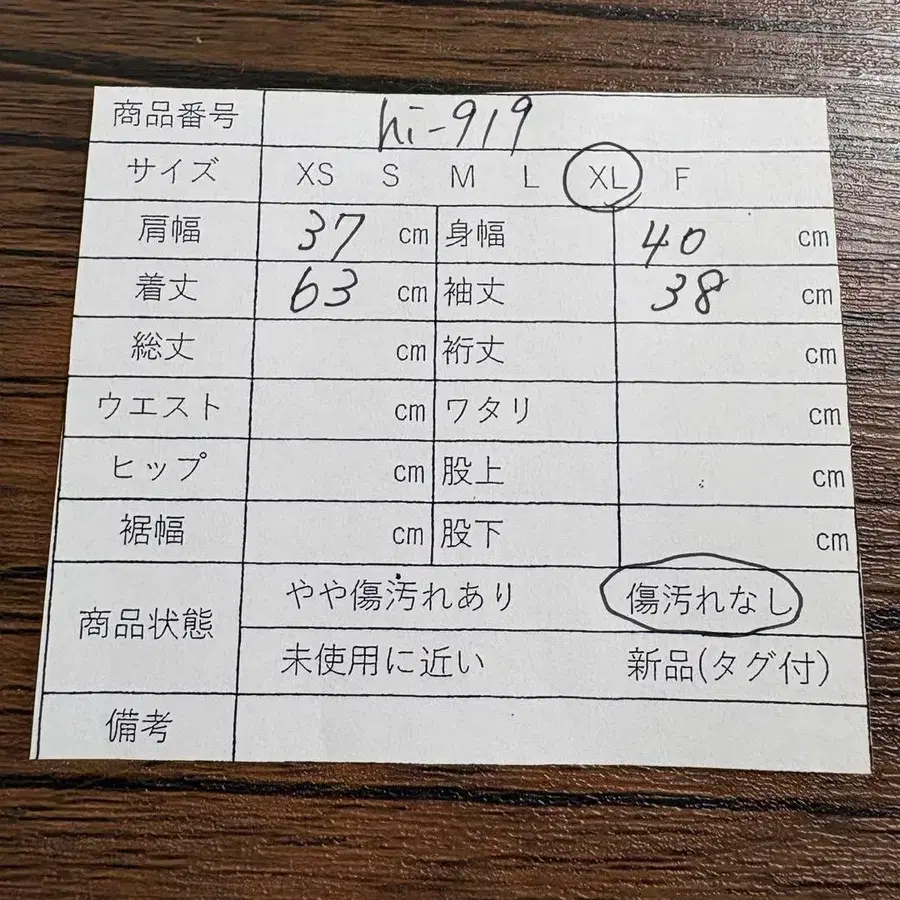 商品番号 hi-919
サイズ XS S M L XL F
肩幅 37 cm 身幅 40 cm
着丈 63 cm 袖丈 38 cm
総丈 cm 裄丈 cm
ウエスト cm ワタリ cm
ヒップ cm 股上 cm
裾幅 cm 股下 cm
商品状態 やや傷汚れあり 傷汚れなし
未使用に近い 新品(タグ付)
備考